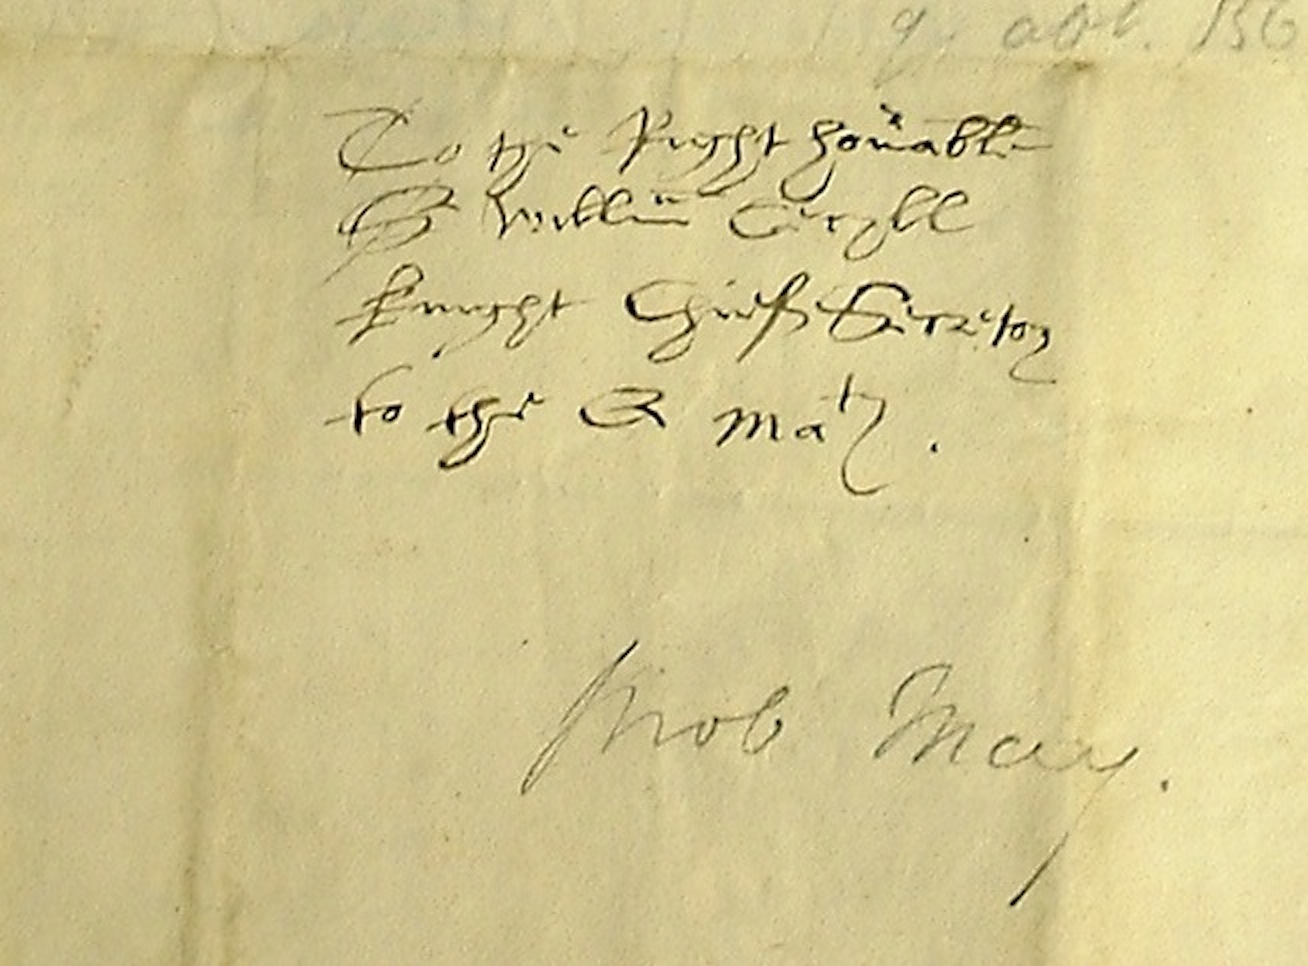 9 apr. 156
To the Right honorable
Sr Willm Cecyll
knyght Chief Secretory
to the Q Maty.
May.